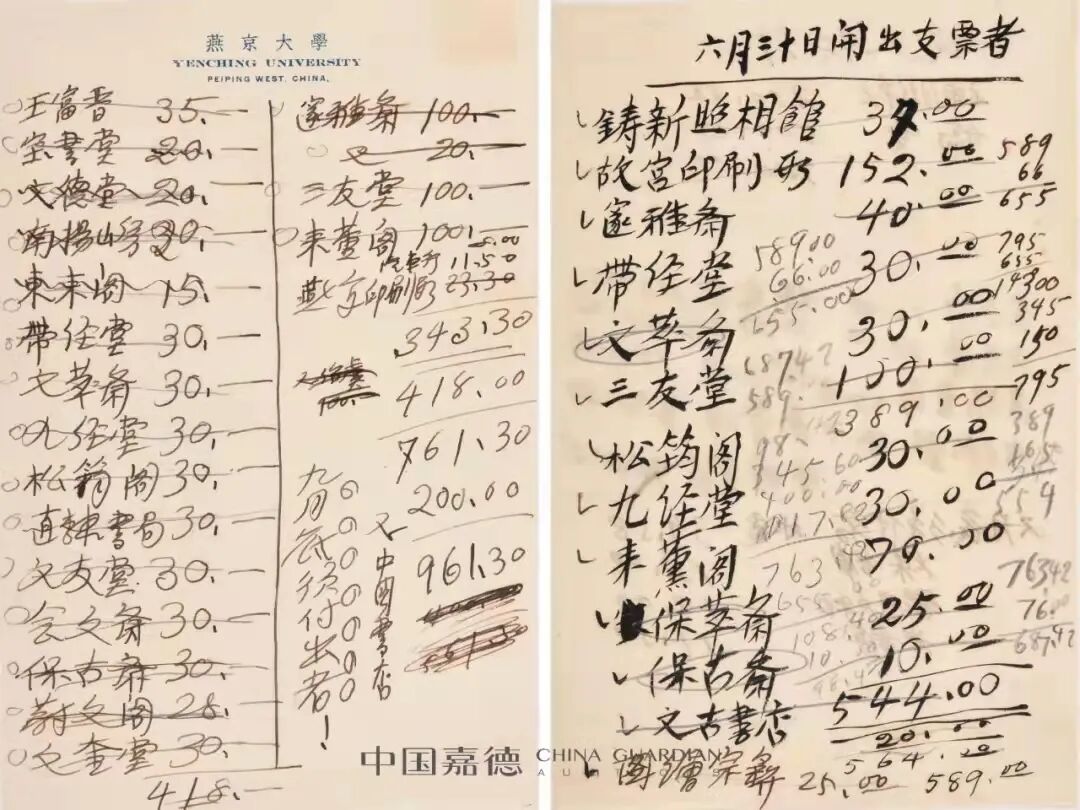 燕京大學
YENCHING UNIVERSITY
PEIPING WEST, CHINA.
王富晋 35.—
宝書堂 20.—
文德堂 20.—
東来阁 15.—
帶经堂 30.—
文萃斋 30.—
九经堂 30.—
松筠阁 30.—
直隸書局 30.—
文友堂 30.—
会文斋 30.—
保古斋 30.—
蔚文阁 28.—
文奎堂 30.—
418.—
邃雅斋 100.—
又 20.—
三友堂 100.—
来薰阁 100.—
11.50
燕京印刷所 23.30
343.30
418.00
761.30
200.00
961.30
100.
九月底須付出者!
又中國書店
六月三十日開出支票者
鑄新照相館 37.00
故宫印刷所 152.00
邃雅斋 40.00
帶经堂 30.00
文萃斋 30.00
三友堂 100.00
389.00
松筠阁 30.00
九经堂 30.00
来薰阁 79.00
保萃斋 25.00
保古斋 10.00
544.00
文古書店 20.00
564.00
25.00 589.00
589
66
655
795
655
345
150
795
389
554
76342
76.00
687.42
589.00
66.00
655.00
68742
589.
中国嘉德 CHINA GUARDIAN
AUCTIONS